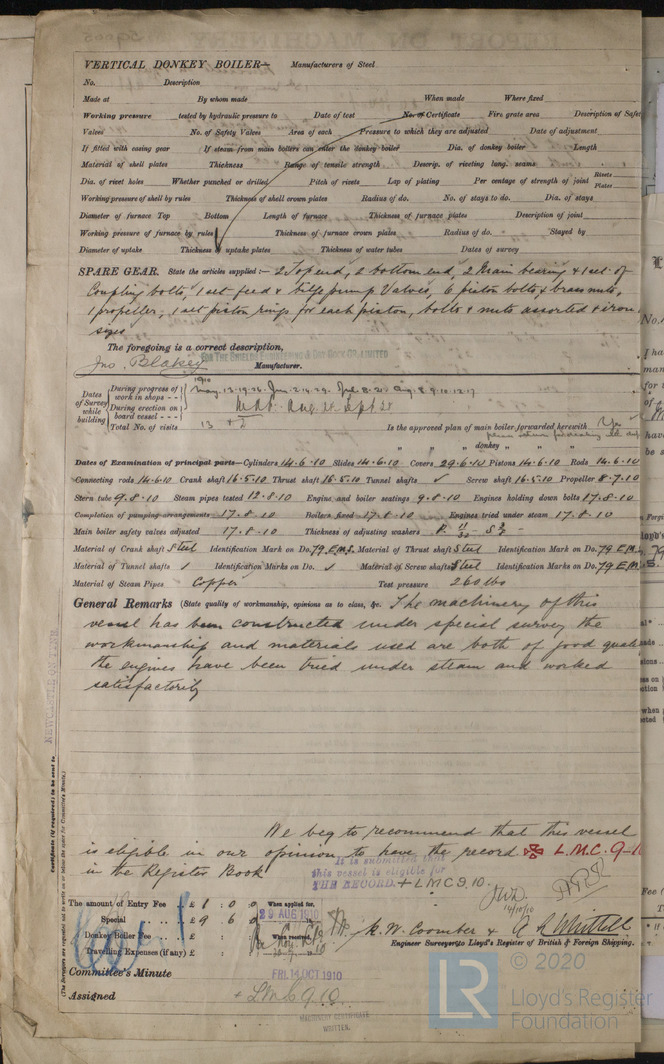 VERTICAL DONKEY BOILER— Manufacturers of Steel
No. Description
Made at By whom made When made Where fixed
Working pressure tested by hydraulic pressure to Date of test No. of Certificate Fire grate area Description of Safe
Valves No. of Safety Valves Area of each Pressure to which they are adjusted Date of adjustment
If fitted with casing gear If steam from main boilers can enter the donkey boiler Dia. of donkey boiler Length
Material of shell plates Thickness Range of tensile strength Descrip. of riveting long. seams
Dia. of rivet holes Whether punched or drilled Pitch of rivets Lap of plating Per centage of strength of joint Rivets Plates
Working pressure of shell by rules Thickness of shell crown plates Radius of do. No. of stays to do. Dia. of stays
Diameter of furnace Top Bottom Length of furnace Thickness of furnace plates Description of joint
Working pressure of furnace by rules Thickness of furnace crown plates Radius of do. Stayed by
Diameter of uptake Thickness of uptake plates Thickness of water tubes Dates of survey
SPARE GEAR. State the articles supplied:— 2 Top end, 2 bottom end, 2 Main bearing & 1 set of
Coupling bolts, 1 set feed & bilge pump Valves, 6 piston bolts & brass nuts,
1 propeller, 1 set piston rings for each piston, bolts & nuts assorted & iron
sizes
The foregoing is a correct description,
FOR THE SHIELDS ENGINEERING & DRY DOCK CO. LIMITED
Jno. Blakey Manufacturer.
Dates of Survey while building
During progress of work in shops - - 1910
During erection on board vessel - - -
Total No. of visits 13
Is the approved plan of main boiler forwarded herewith Yes
" " " donkey " " "
Dates of Examination of principal parts—Cylinders 14.6.10 Slides 14.6.10 Covers 29.6.10 Pistons 14.6.10 Rods 14.6.10
Connecting rods 14.6.10 Crank shaft 16.5.10 Thrust shaft 16.5.10 Tunnel shafts ✓ Screw shaft 16.5.10 Propeller 8.7.10
Stern tube 9.8.10 Steam pipes tested 12.8.10 Engine and boiler seatings 9.8.10 Engines holding down bolts 17.8.10
Completion of pumping arrangements 17.8.10 Boilers fixed 17.8.10 Engines tried under steam 17.8.10
Main boiler safety valves adjusted 17.8.10 Thickness of adjusting washers
Material of Crank shaft Steel Identification Mark on Do. 79 E.M.S. Material of Thrust shaft Steel Identification Mark on Do. 79 E.M.
Material of Tunnel shafts ✓ Identification Marks on Do. ✓ Material of Screw shafts Steel Identification Marks on Do. 79 E.M.
Material of Steam Pipes Copper Test pressure 260 lbs
General Remarks (State quality of workmanship, opinions as to class, &c. The machinery of this
vessel has been constructed under special survey the
workmanship and materials used are both of good qual
the engines have been tried under steam and worked
satisfactorily
We beg to recommend that this vessel
is eligible in our opinion to have the record ✠ L.M.C. 9-1
in the Register Book
It is submitted that
this vessel is eligible for
THE RECORD. + LMC 9.10.
14/10/10
The amount of Entry Fee £ 1 : 0 : 0 When applied for,
Special £ 9 : 6 29 AUG 1910
Donkey Boiler Fee £ When received,
Travelling Expenses (if any) £
Engineer Surveyors to Lloyd's Register of British & Foreign Shipping.
Committee's Minute FRI. 14 OCT 1910
Assigned + LMC 9.10.
MACHINERY CERTIFICATE
WRITTEN.
NEWCASTLE ON TYNE
© 2020
LR
Lloyd's Register
Foundation